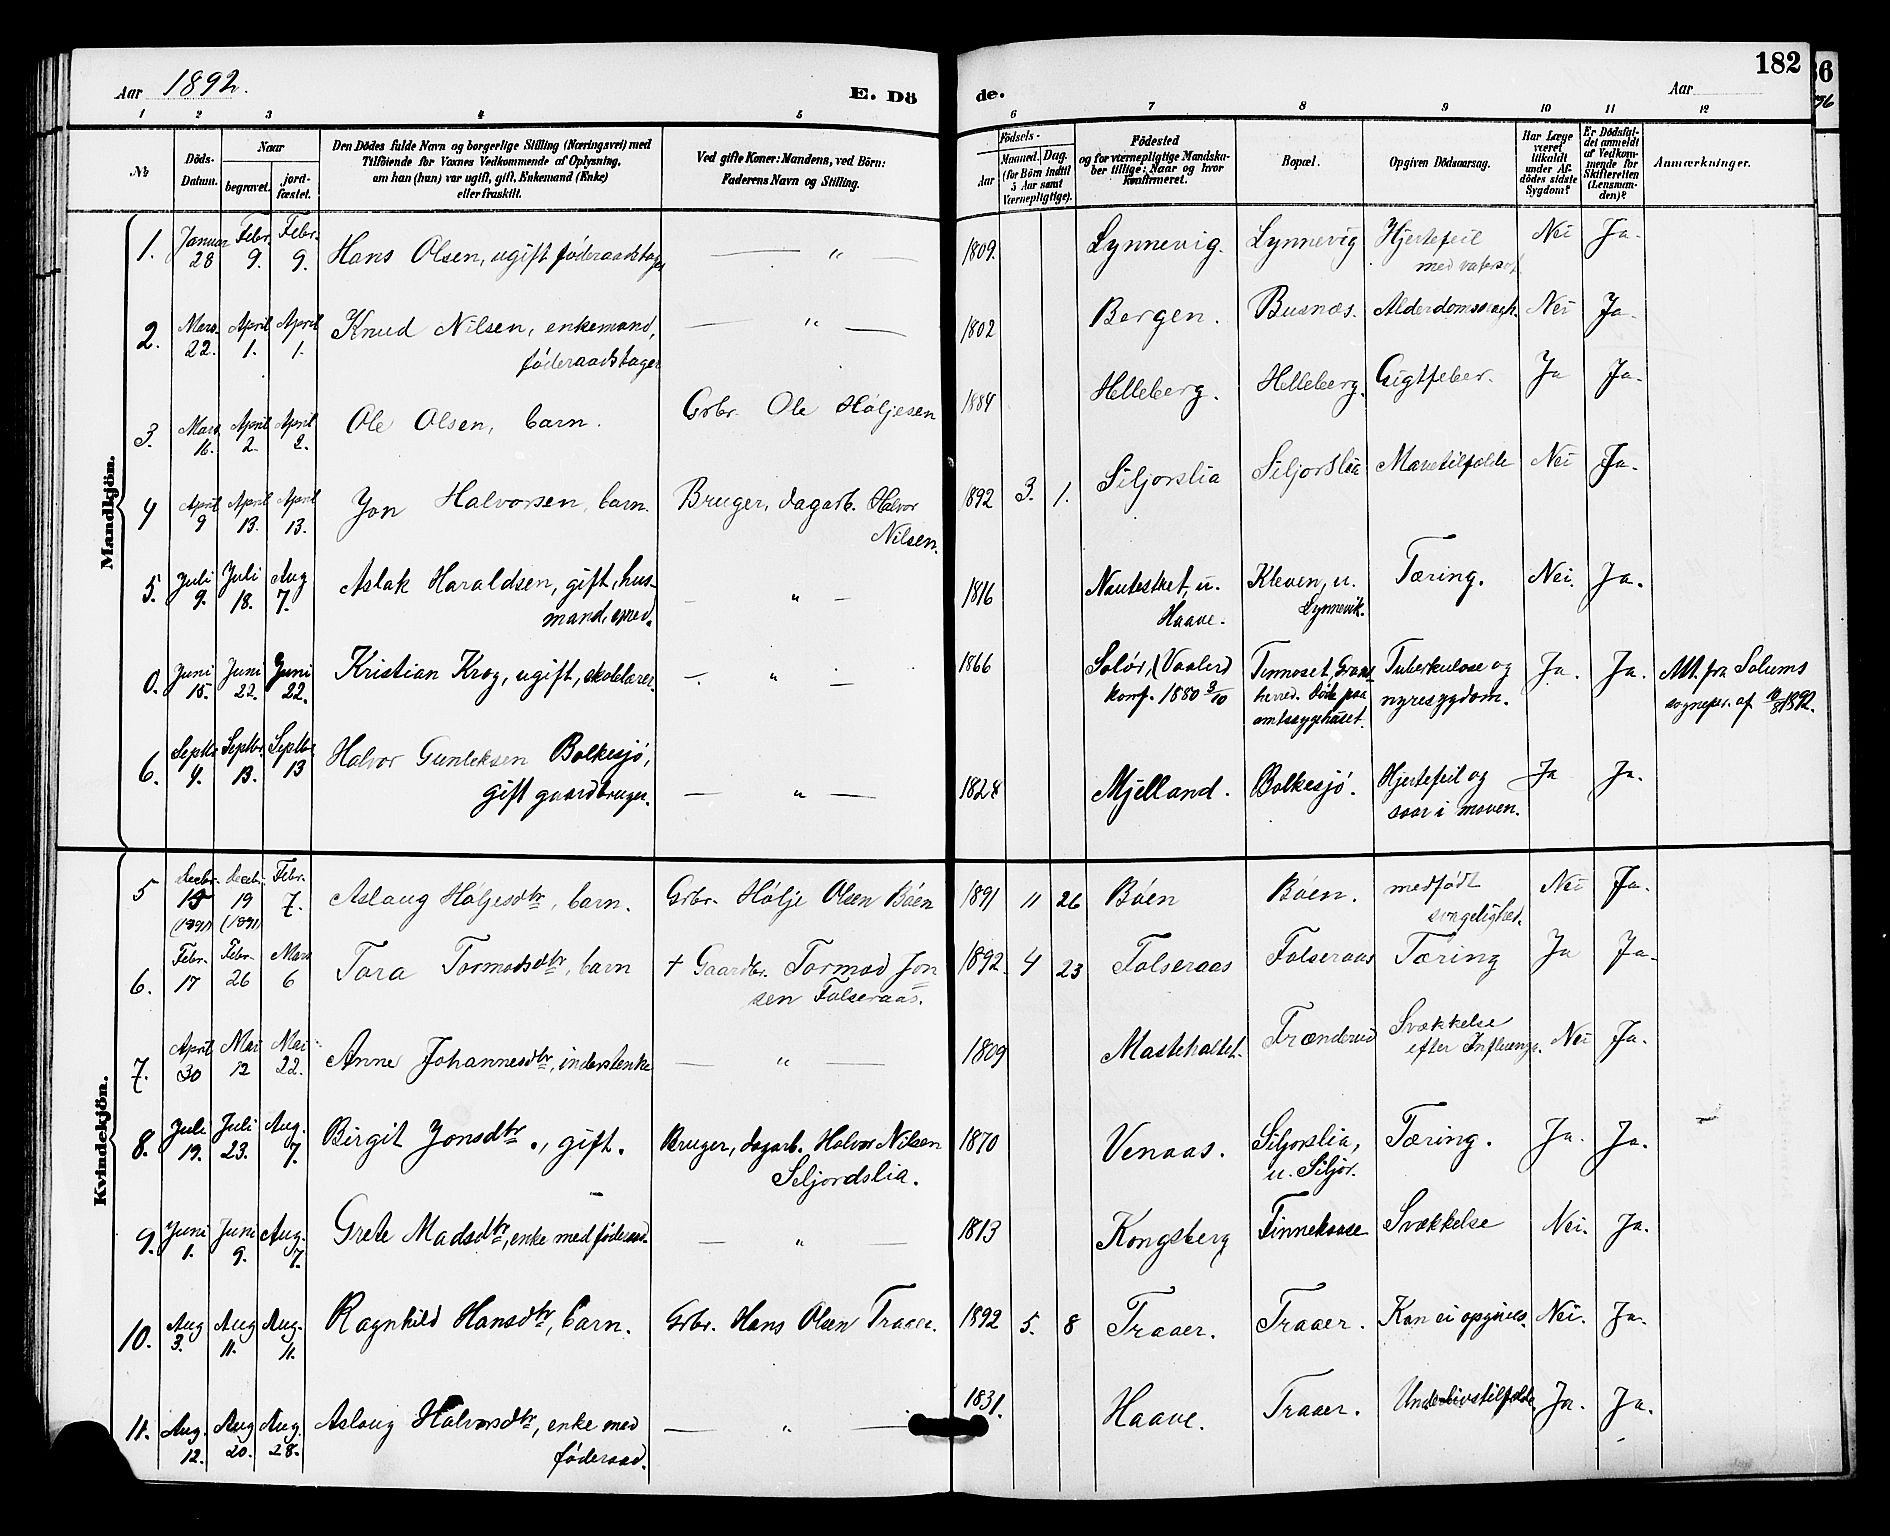 Aar 1892.
E. Dö
de.
Aar
182
1 2 3 4 5 6 7 8 9 10 11 12
No
Döds-Datum.
Naar
begravet.
jord-fæstet.
Den Dödes fulde Navn og borgerlige Stilling (Næringsvei) med
Tilföiende for Voxnes Vedkommende af Oplysning,
om han (hun) var ugift, gift, Enkemand (Enke)
eller fraskilt.
Ved gifte Koner: Mandens, ved Börn:
Faderens Navn og Stilling.
Födsels-
Aar
Maaned. Dag.
(for Börn indtil
5 Aar samt
Værnepligtige).
Födested
og for værnepligtige Mandska-
ber tillige: Naar og hvor
Konfirmeret.
Bopæl.
Opgiven Dödsaarsag.
Har Læge
været
tilkaldt
under Af-
dödes sidste
Sygdom?
Er Dödsfal-
det anmeldt
af Vedkom-
mende for
Skifteretten
(Lensman-
den)?
Anmærkninger.
Mandkjön.
1. Januar 28 Febr. 9. Febr. 9. Hans Olsen, ugift föderaadstager — " — 1809. Lynnevig. Lynnevig Hjertefeil Nei Ja.
med vatersot
2. Mars 22. April 1. April 1. Knud Nilsen, enkemand, — " — 1802 Bergen. Busnæs. Nei Ja.
föderaadstager
3. Mars 16. April 2. April 2. Ole Olsen, barn. Grbr. Ole Höljesen 1884 Helleberg. Helleberg. Gigtfeber. Ja Ja.
4 April 9 April 13. April 13. Jon Halvorsen, barn. Bruger, dagarb. Halvor 1892 3. 1. Siljorslia Siljorslia Mavetilfælde Nei Ja.
Nilsen.
5. Juli 9. Juli 18. Aug 7. Aslak Haraldsen, gift, hus- — " — 1816 u. Kleven, u. Tæring. Nei. Ja.
mand, Haave. Lynnevik.
0. Juni 15. Juni 22. Juni 22. Kristian Krog, ugift, skolelærer. — " — 1866 Solör, (Vaaler) Tinnoset, Grans- Tuberkulose og Ja. Ja. Mt. fra Solums
konf. 1880 3/10 herred. Döde paa nyresygdom. sognepr. af 10/8 1892.
amtssygehuset.
6. Septbr. 4. Septbr. 13. Septbr. 13 Halvor Gunleksen Bolkesjö, — " — 1828 Mjelland. Bolkesjö. Hjertefeil og Ja Ja.
gift gaardbruger. saar i maven.
Kvindekjön.
5 Decbr. 13 (1891) Decbr. 19 (1891) Febr. 7. Aslaug Höljesdtr, barn. Grbr. Hölje Olsen Böen 1891 11 26 Böen Böen. medfödt Nei Ja.
6. Febr. 17 Febr. 26 Mars 6 Tora Tormodsdtr, barn † Gaardbr. Tormod Jon 1892. 4 23 Folseraas Folseraas Tæring Ja Ja.
sen Folseraas.
7. April 30 Mai 12 Mai 22. Anne Johannesdtr, inderstenke — " — 1809 Mastehaltet. Frænderud Svækkelse Nei Ja.
efter Influenza.
8. Juli 19. Juli 23. Aug. 7. Birgit Jonsdtr., gift. Bruger, dagarb. Halvor Nilsen 1870 Venaas. Siljorslia, Tæring. Ja. Ja.
Seljordslia. u. Siljor.
9. Juni 1. Juni 9. Aug. 7. Grete Madsdtr, enke med föderaad. — " — 1813 Kongsberg Finnekaase Svækkelse Nei. Ja.
10. Aug 3. Aug 11. Aug. 11. Ragnhild Hansdtr, barn. Grbr. Hans Olsen Traaer. 1892 5. 8 Traaer. Traaer. Kan ei opgives. Nei. Ja.
11. Aug. 12. Aug 20. Aug. 28. Aslaug Halvorsdtr, enke med — " — 1831. Haave. Traaer. Underlivstilfælde. Ja. Ja.
föderaad.